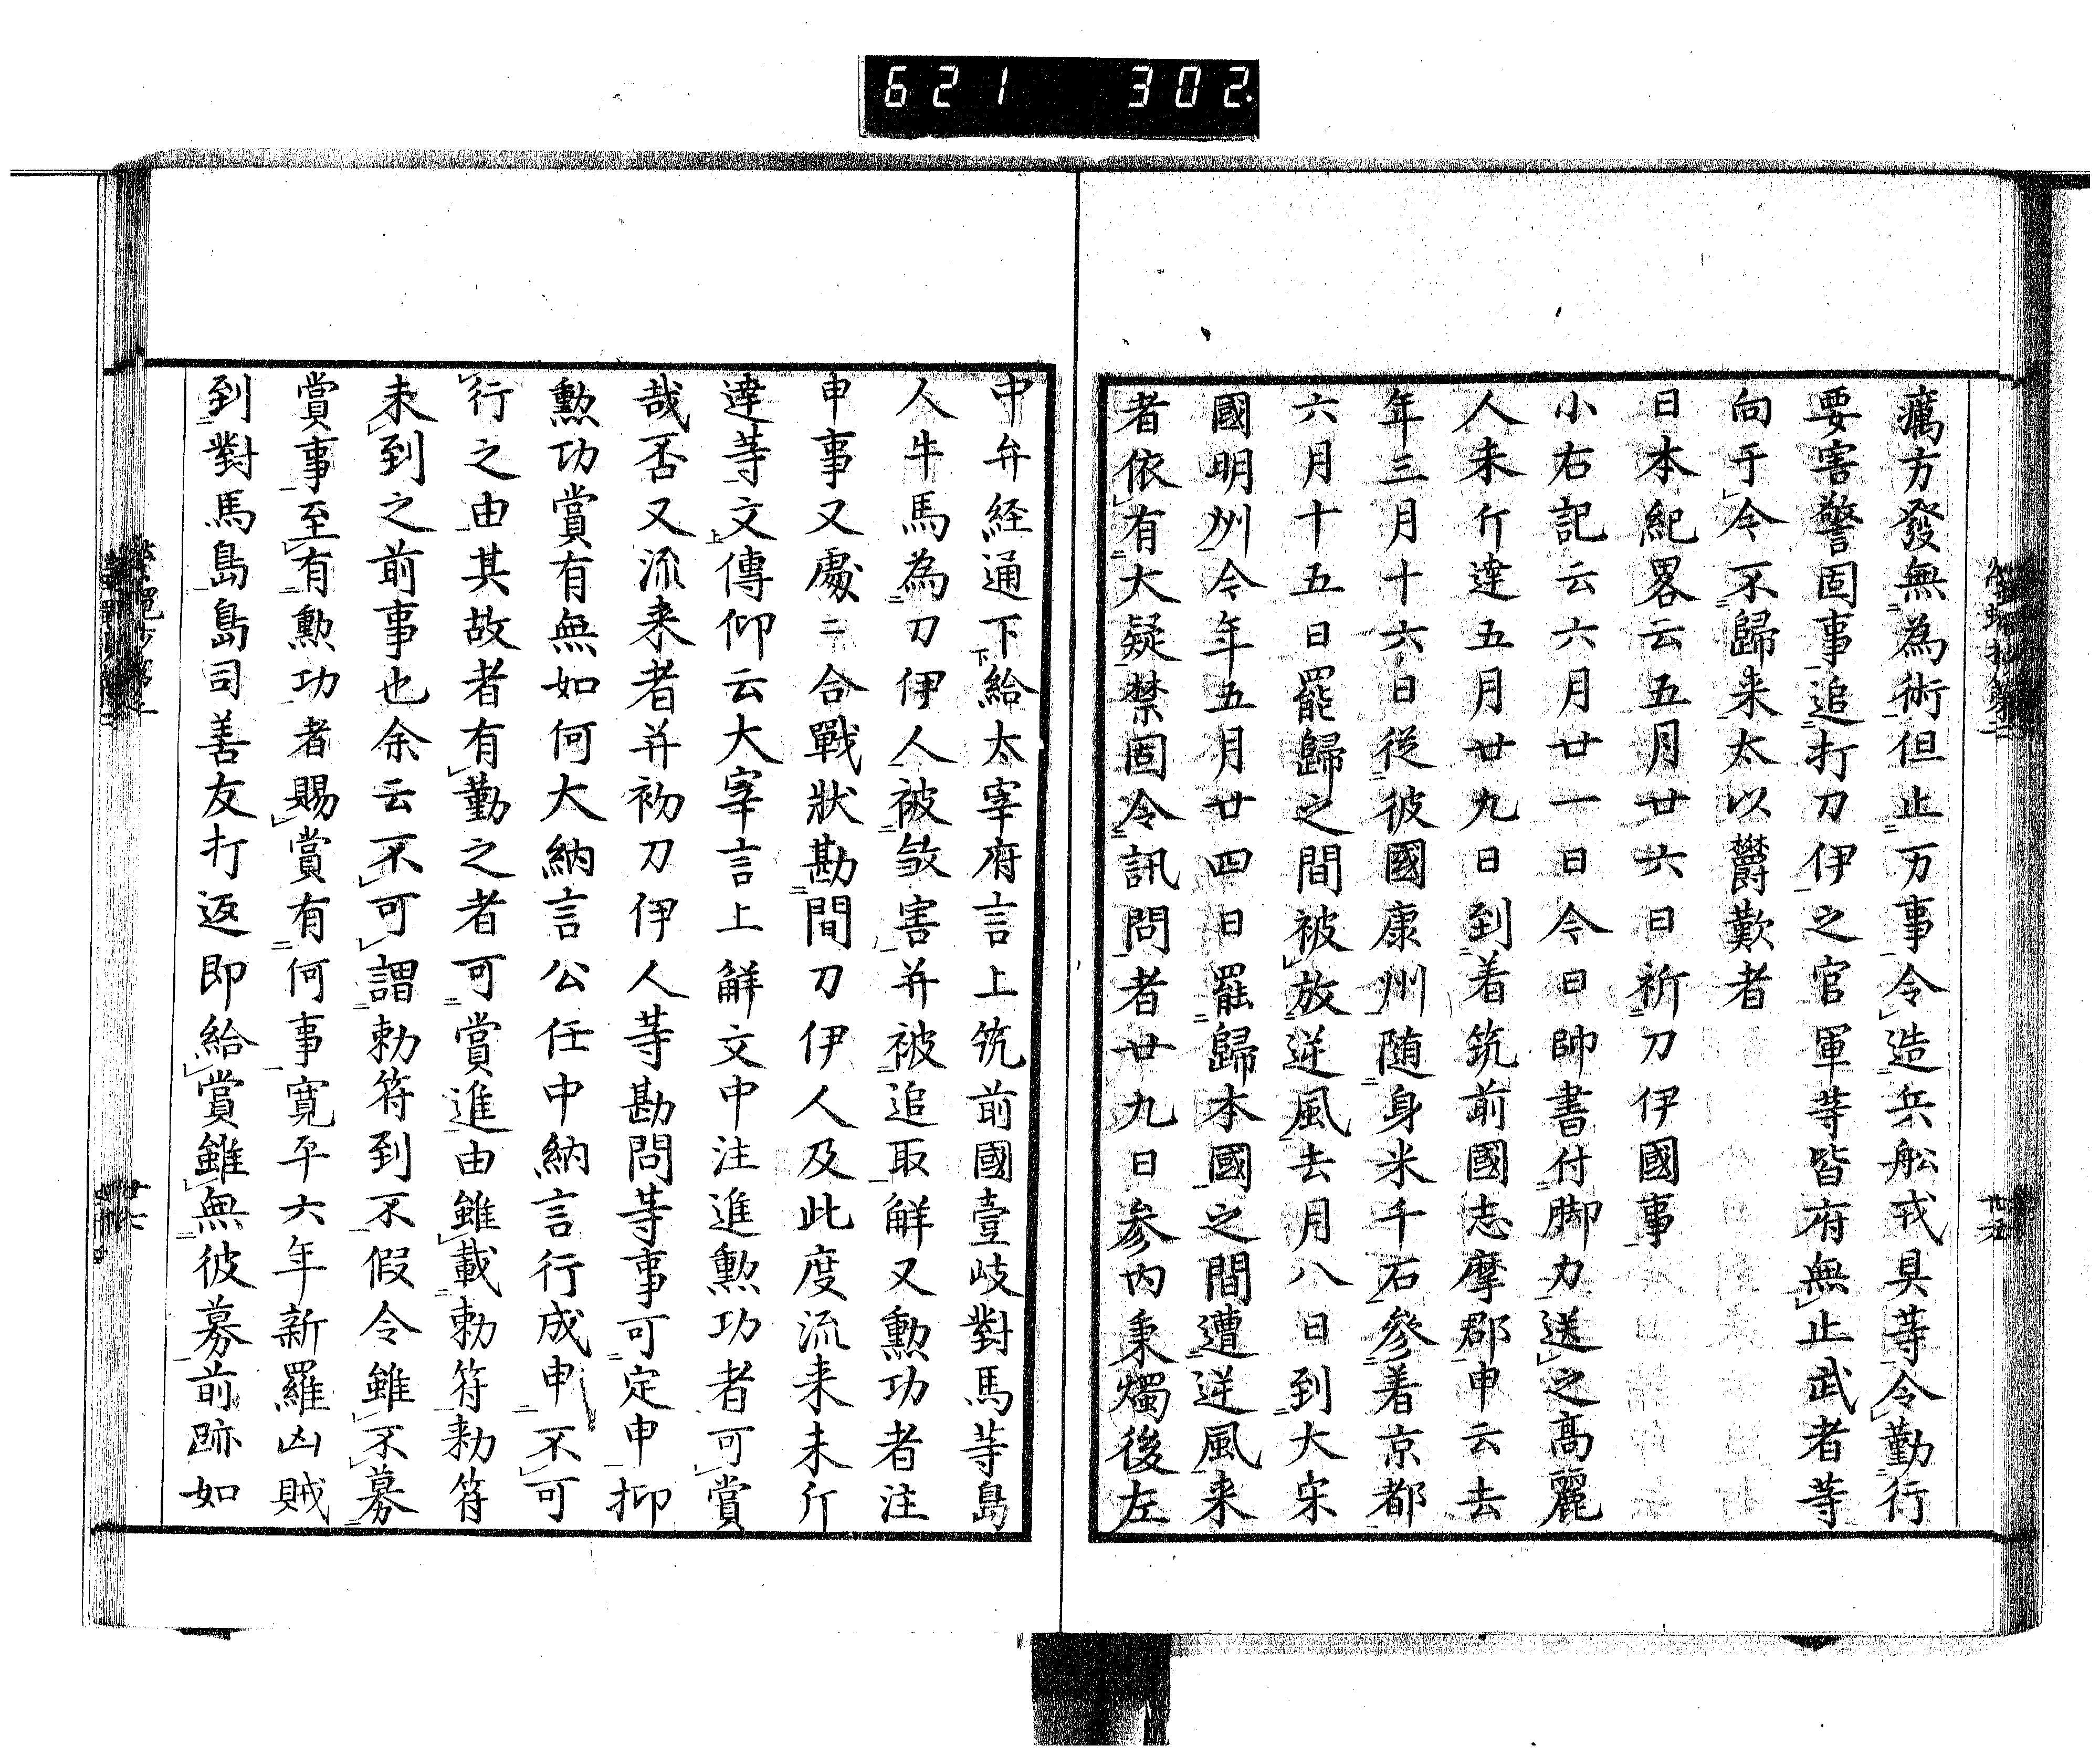 621 302
癘方發無為術但止万事令造兵舩戎具等令勤行
要害警固事追打刀伊之官軍等皆府無止武者等
向于今不歸来太以欝歎者
日本紀畧云五月廿六日祈刀伊國事
小右記云六月廿一日今日帥書付脚力送之高麗
人未斤達五月廿九日到着筑前國志摩郡申云去
年三月十六日從彼國康州随身米千石參着京都
六月十五日罷歸之間被放逆風去月八日到大宋
國明州今年五月廿四日罷歸本國之間遭逆風来
者依有大疑禁固令訊問者廿九日参内秉燭後左
中弁経通下給太宰府言上筑前國壹岐對馬等島
人牛馬為刀伊人被殺害并被追取解又勲功者注
申事又處二合戰狀勘問刀伊人及此度流来未斤
達等文傳仰云大宰言上解文中注進勲功者可賞
哉否又流来者并初刀伊人等勘問等事可定申抑
勲功賞有無如何大納言公任中納言行成申不可
行之由其故者有勤之者可賞進由雖載勅符勅符
未到之前事也余云不可謂勅符到不假令雖不募
賞事至有勲功者賜賞有何事寛平六年新羅凶賊
到對馬島島司善友打返即給賞雖無彼募前跡如